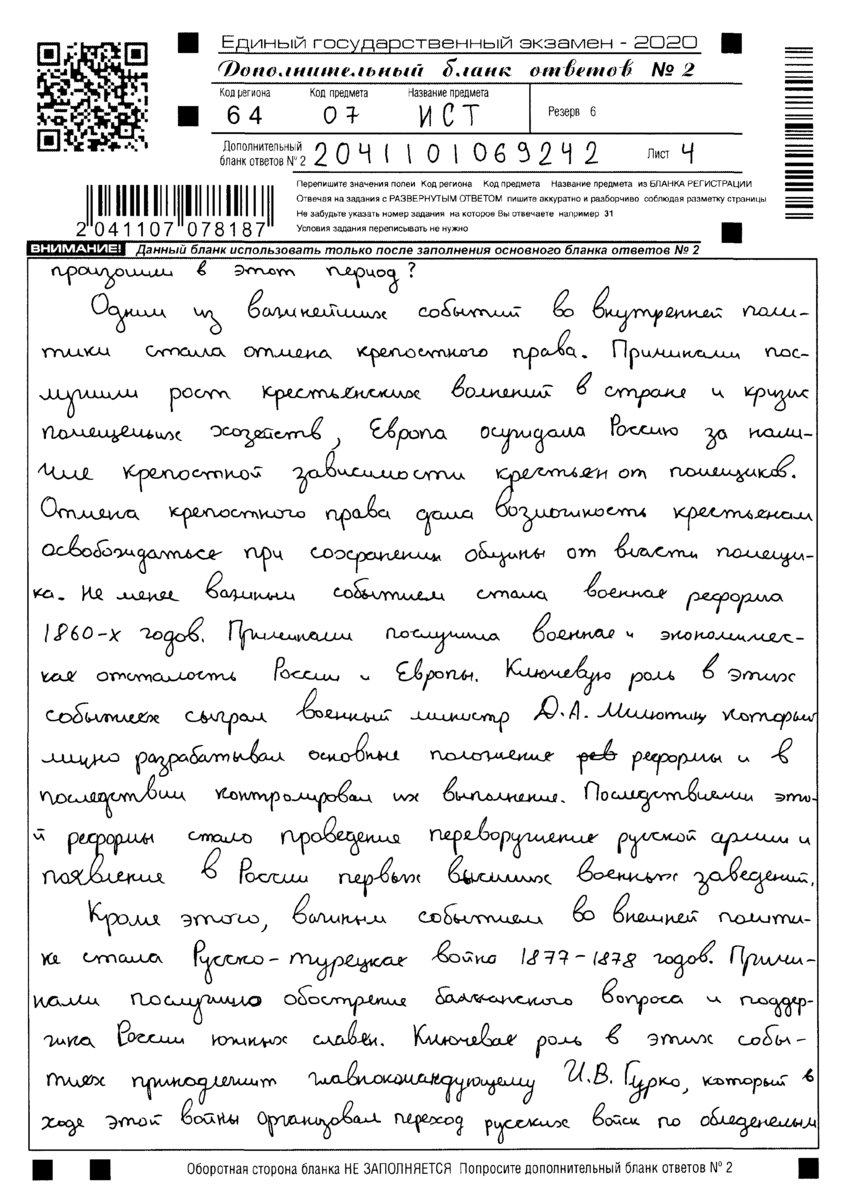 Единый государственный экзамен - 2020
Дополнительный бланк ответов № 2
Код региона Код предмета Название предмета
64 07 ИСТ
Резерв 6
Дополнительный бланк ответов № 2 2041101069242 Лист 4
Перепишите значения полей Код региона Код предмета Название предмета из БЛАНКА РЕГИСТРАЦИИ
Отвечая на задания с РАЗВЕРНУТЫМ ОТВЕТОМ пишите аккуратно и разборчиво соблюдая разметку страницы
Не забудьте указать номер задания на которое Вы отвечаете например 31
Условия задания переписывать не нужно
2 041107 078187
ВНИМАНИЕ! Данный бланк использовать только после заполнения основного бланка ответов № 2
произошли в этот период?
Одним из важнейших событий во внутренней поли-
тики стала отмена крепостного права. Причинами пос-
лужили рост крестьянских волнений в стране и кризис
помещечьих хозяйств, Европа осуждала Россию за нали-
чие крепостной зависимости крестьян от помещиков.
Отмена крепостного права дала возможность крестьянам
освобождаться при сохранении общины от власти помещи-
ка. Не менее важным событием стала военная реформа
1860-х годов. Причинами послужила военная и экономичес-
кая отсталость России и Европы. Ключевую роль в этих
событиях сыграл военный министр Д.А. Милютин который
лично разрабатывал основные положение рев реформы и в
последствии контролировал их выполнение. Последствиями это-
й реформы стало проведение переворужение русской армии и
появление в России первых высших военных заведений.
Кроме этого, важным событием во внешней полити-
ке стала Русско-турецкая война 1877-1878 годов. Причи-
нами послужило обострение балканского вопроса и поддер-
жка России южных славян. Ключевая роль в этих собы-
тиях принодлежит главнокомандующему И.В. Гурко, который в
ходе этой войны организовал переход русских войск по обледенелым
Оборотная сторона бланка НЕ ЗАПОЛНЯЕТСЯ Попросите дополнительный бланк ответов № 2